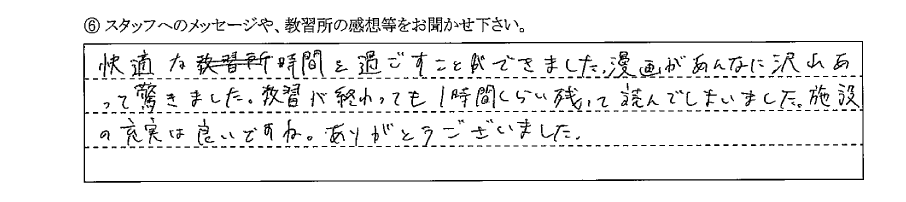 ⑥ スタッフへのメッセージや、教習所の感想等をお聞かせ下さい。
快適な教習所時間を過ごすことができました。漫画があんなに沢山あ
って驚きました。教習が終わっても1時間くらい残って読んでしまいました。施設
の充実は良いですね。ありがとうございました。